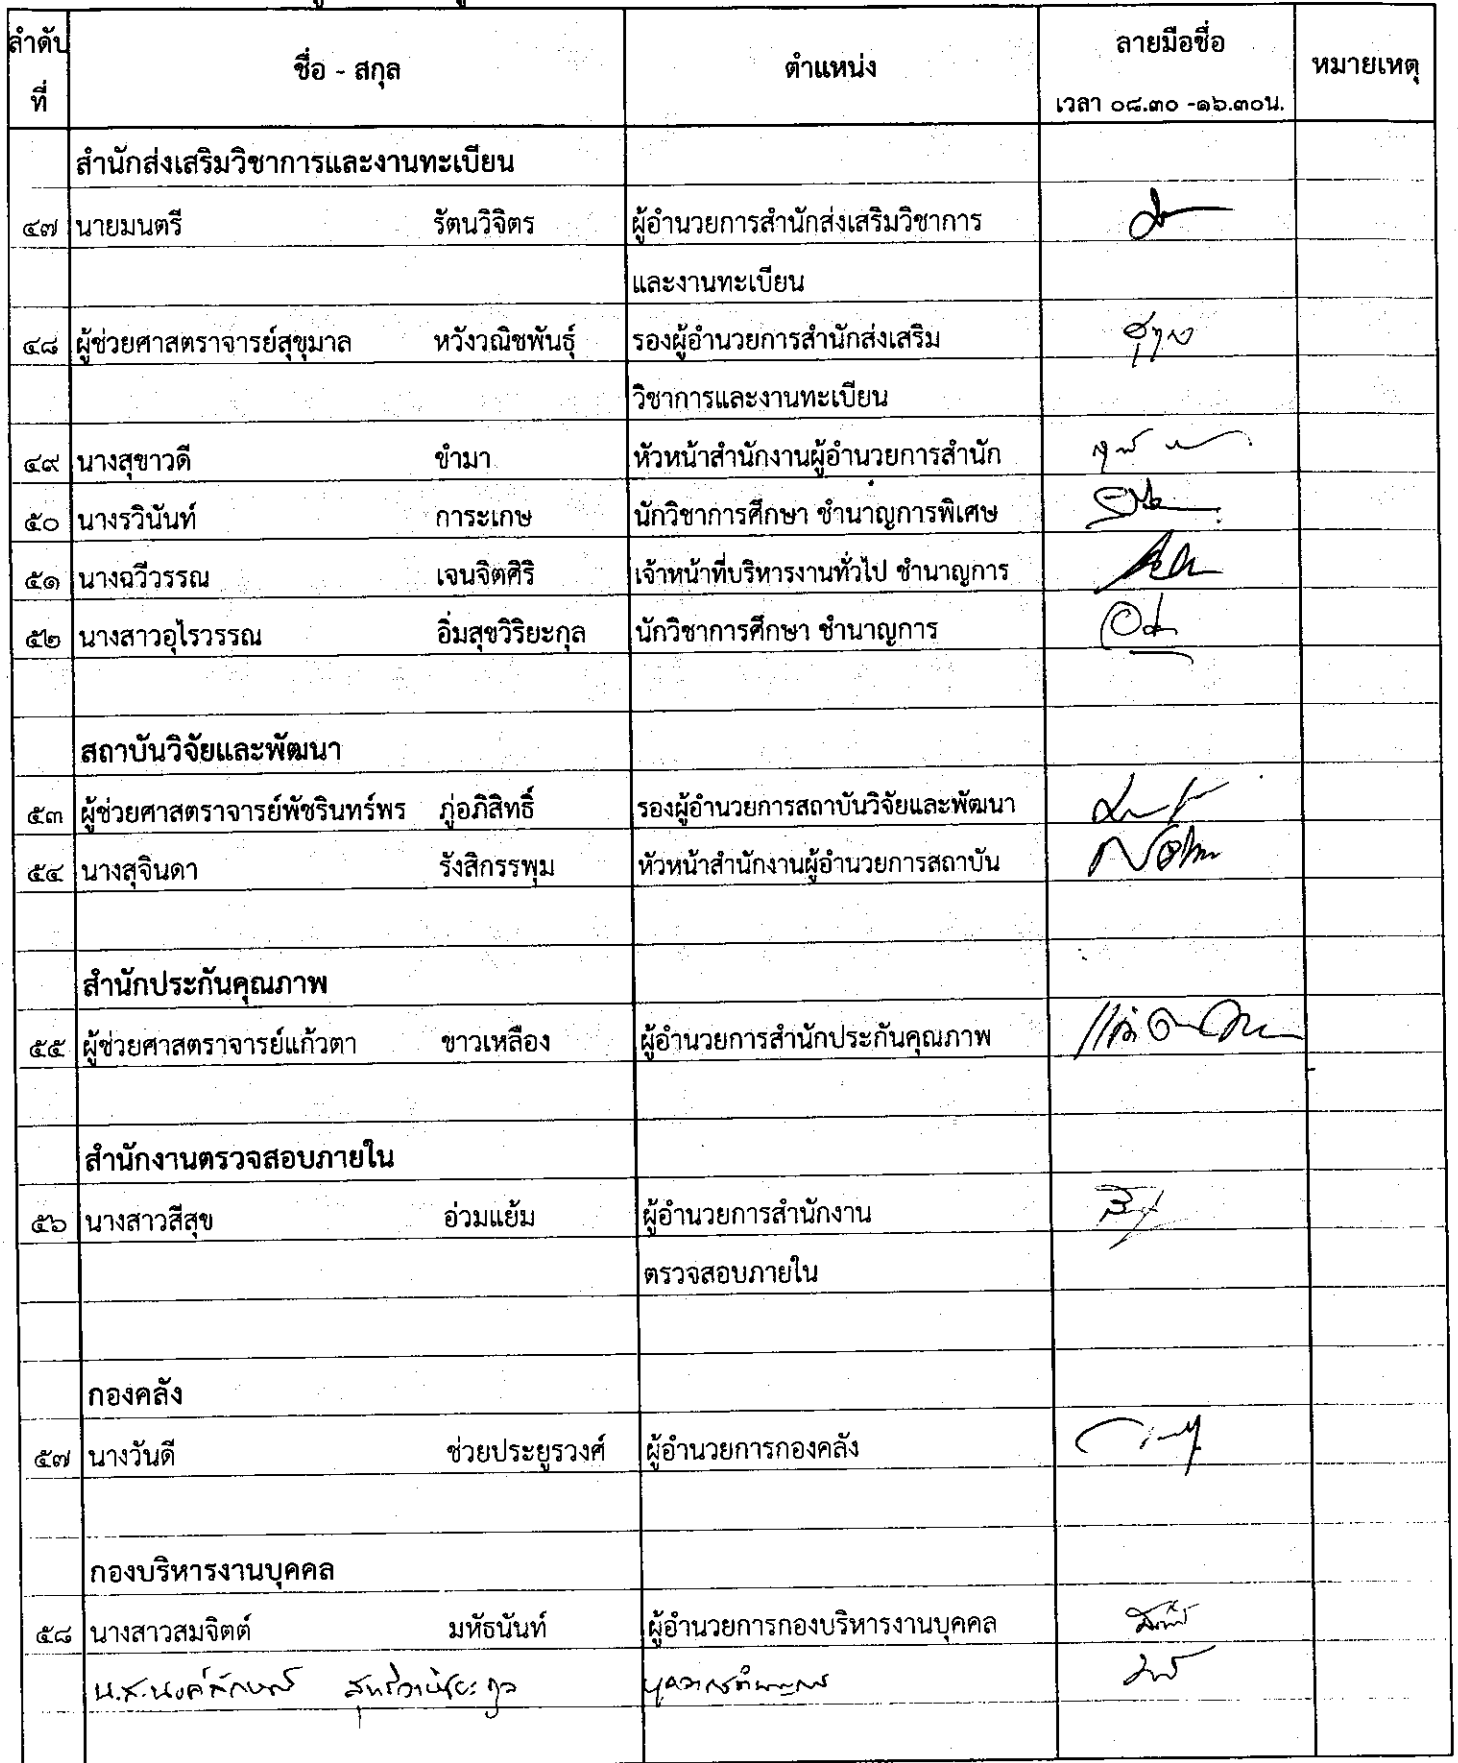 ลำดับที่ ชื่อ - สกุล ตำแหน่ง ลายมือชื่อ หมายเหตุ
เวลา ๐๘.๓๐ -๑๖.๓๐น.
สำนักส่งเสริมวิชาการและงานทะเบียน
๔๗ นายมนตรี รัตนวิจิตร ผู้อำนวยการสำนักส่งเสริมวิชาการ
และงานทะเบียน
๔๘ ผู้ช่วยศาสตราจารย์สุขุมาล หวังวณิชพันธุ์ รองผู้อำนวยการสำนักส่งเสริม
วิชาการและงานทะเบียน
๔๙ นางสุขาวดี ขำมา หัวหน้าสำนักงานผู้อำนวยการสำนัก
๕๐ นางรวินันท์ การะเกษ นักวิชาการศึกษา ชำนาญการพิเศษ
๕๑ นางฉวีวรรณ เจนจิตศิริ เจ้าหน้าที่บริหารงานทั่วไป ชำนาญการ
๕๒ นางสาวอุไรวรรณ อิ่มสุขวิริยะกุล นักวิชาการศึกษา ชำนาญการ
สถาบันวิจัยและพัฒนา
๕๓ ผู้ช่วยศาสตราจารย์พัชรินทร์พร ภู่อภิสิทธิ์ รองผู้อำนวยการสถาบันวิจัยและพัฒนา
๕๔ นางสุจินดา รังสิกรรพุม หัวหน้าสำนักงานผู้อำนวยการสถาบัน
สำนักประกันคุณภาพ
๕๕ ผู้ช่วยศาสตราจารย์แก้วตา ขาวเหลือง ผู้อำนวยการสำนักประกันคุณภาพ
สำนักงานตรวจสอบภายใน
๕๖ นางสาวสีสุข อ่วมแย้ม ผู้อำนวยการสำนักงาน
ตรวจสอบภายใน
กองคลัง
๕๗ นางวันดี ช่วยประยูรวงศ์ ผู้อำนวยการกองคลัง
กองบริหารงานบุคคล
๕๘ นางสาวสมจิตต์ มหัธนันท์ ผู้อำนวยการกองบริหารงานบุคคล
น.ส.นงค์ลักษณ์